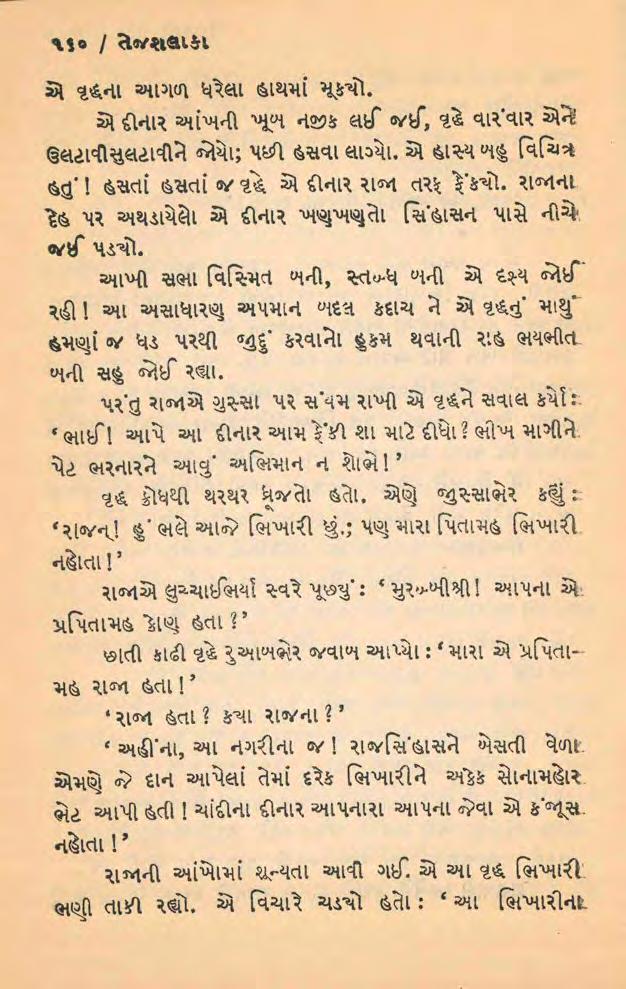 ૧૬૦ / તેજશલાકા
એ વૃદ્ધના આગળ ધરેલા હાથમાં મૂકયો.
એ દીનાર આંખની ખૂબ નજીક લઈ જઈ, વૃદ્ધે વારંવાર એને
ઉલટાવીસુલટાવીને જોયો; પછી હસવા લાગ્યો. એ હાસ્ય બહુ વિચિત્ર
હતું! હસતાં હસતાં જ વૃદ્ધે એ દીનાર રાજા તરફ ફેંકયો. રાજાના
દેહ પર અથડાયેલો એ દીનાર ખણુખણુતો સિંહાસન પાસે નીચે
જઈ પડયો.
આખી સભા વિસ્મિત બની, સ્તબ્ધ બની એ દૃશ્ય જોઈ
રહી! આ અસાધારણ અપમાન બદલ કદાચ ને એ વૃદ્ધનું માથું
હમણાં જ ધડ પરથી જુદું કરવાનો હુકમ થવાની રાહ ભયભીત
બની સહુ જોઈ રહ્યા.
પરંતુ રાજાએ ગુસ્સા પર સંયમ રાખી એ વૃદ્ધને સવાલ કર્યો :
‘ભાઈ! આપે આ દીનાર આમ ફેંકી શા માટે દીધો? ભીખ માગીને
પેટ ભરનારને આવું અભિમાન ન શોભે!’
વૃદ્ધ ક્રોધથી થરથર ધ્રૂજતો હતો. એણે જુસ્સાભેર કહ્યું :
‘રાજન્! હું ભલે આજે ભિખારી છું.; પણ મારા પિતામહ ભિખારી
નહોતા!’
રાજાએ લુચ્ચાઈભર્યા સ્વરે પૂછયું : ‘મુરબ્બીશ્રી! આપના એ
પ્રપિતામહ કોણ હતા?’
છાતી કાઢી વૃદ્ધે રુઆબભેર જવાબ આપ્યો : ‘મારા એ પ્રપિતા-
મહ રાજા હતા!’
‘રાજા હતા? કયા રાજના?’
‘અહીંના, આ નગરીના જ! રાજસિંહાસને બેસતી વેળા
એમણે જે દાન આપેલાં તેમાં દરેક ભિખારીને અકેક સોનામહોર
ભેટ આપી હતી! ચાંદીના દીનાર આપનારા આપના જેવા એ કંજૂસ
નહોતા!’
રાજાની આંખોમાં શૂન્યતા આવી ગઈ. એ આ વૃદ્ધ ભિખારી
ભણી તાકી રહ્યો. એ વિચારે ચડયો હતો : ‘આ ભિખારીના